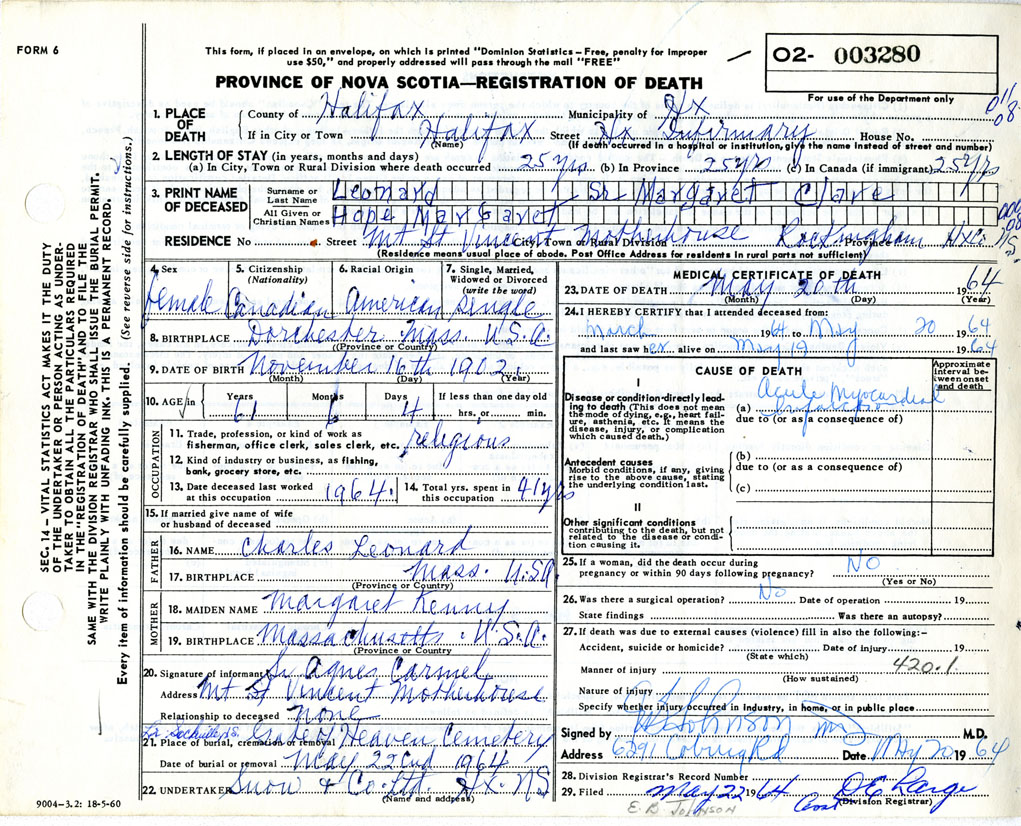 FORM 6
This form, if placed in an envelope, on which is printed "Dominion Statistics – Free, penalty for improper
use $50," and properly addressed will pass through the mail "FREE"
O2- 003280
PROVINCE OF NOVA SCOTIA—REGISTRATION OF DEATH
For use of the Department only
1. PLACE OF DEATH
County of Halifax Municipality of Hx
If in City or Town Halifax Street Hx Infirmary House No.
(Name) (If death occurred in a hospital or institution, give the name instead of street and number)
2. LENGTH OF STAY (in years, months and days)
(a) In City, Town or Rural Division where death occurred 25 yrs (b) In Province 25 yrs (c) In Canada (if immigrant) 25 Yrs
3. PRINT NAME OF DECEASED
Surname or Last Name Leonard Sr. Margaret Clare
All Given or Christian Names Hope Margaret
RESIDENCE No. Street Mt St Vincent Motherhouse City, Town or Rural Division Rockingham Province Hx Co. N.S.
(Residence means usual place of abode. Post Office Address for residents in rural parts not sufficient)
4. Sex female
5. Citizenship (Nationality) Canadian
6. Racial Origin American
7. Single, Married, Widowed or Divorced (write the word) single
8. BIRTHPLACE Dorchester Mass U.S.A.
(Province or Country)
9. DATE OF BIRTH November 16th 1902
(Month) (Day) (Year)
10. AGE in Years 61 Months 6 Days 4 If less than one day old hrs. or min.
OCCUPATION
11. Trade, profession, or kind of work as
fisherman, office clerk, sales clerk, etc. religious
12. Kind of industry or business, as fishing,
bank, grocery store, etc.
13. Date deceased last worked at this occupation 1964.
14. Total yrs. spent in this occupation 41 yrs
15. If married give name of wife
or husband of deceased
FATHER
16. NAME Charles Leonard
17. BIRTHPLACE Mass. U.S.A
(Province or Country)
MOTHER
18. MAIDEN NAME Margaret Kenny
19. BIRTHPLACE Massachusetts. U.S.A.
(Province or Country)
20. Signature of informant Sr Agnes Carmel
Address Mt St Vincent Motherhouse
Relationship to deceased none
Lr Sackville NS.
21. Place of burial, cremation or removal Gate of Heaven Cemetery
Date of burial or removal May 22nd 1964
22. UNDERTAKER Snow & Co. Ltd. Hx. NS
(Name and address)
9004–3.2: 18-5-60
MEDICAL CERTIFICATE OF DEATH
23. DATE OF DEATH May 20th 1964
(Month) (Day) (Year)
24. I HEREBY CERTIFY that I attended deceased from:
March 1964 to May 20 1964
and last saw her alive on May 19 1964
CAUSE OF DEATH
Approximate interval between onset and death
I
Disease or condition directly leading to death (This does not mean the mode of dying, e.g., heart failure, asthenia, etc. It means the disease, injury, or complication which caused death.)
(a) Acute Myocardial Infarction
due to (or as a consequence of)
Antecedent causes
Morbid conditions, if any, giving rise to the above cause, stating the underlying condition last.
(b)
due to (or as a consequence of)
(c)
II
Other significant conditions
contributing to the death, but not related to the disease or condition causing it.
25. If a woman, did the death occur during
pregnancy or within 90 days following pregnancy? NO
(Yes or No)
26. Was there a surgical operation? No Date of operation 19
State findings Was there an autopsy?
27. If death was due to external causes (violence) fill in also the following:–
Accident, suicide or homicide? Date of injury 19
(State which)
Manner of injury 420.1
(How sustained)
Nature of injury
Specify whether injury occurred in industry, in home, or in public place
Signed by Johnson MD M.D.
Address 6391 Coburg Rd Date May 20 1964
28. Division Registrar's Record Number
29. Filed May 22 1964
(Division Registrar)
E B JOHNSON
SEC. 14 – VITAL STATISTICS ACT MAKES IT THE DUTY
OF THE UNDERTAKER OR PERSON ACTING AS UNDER-
TAKER TO OBTAIN ALL THE PARTICULARS REQUIRED
IN THE "REGISTRATION OF DEATH" AND TO FILE THE
SAME WITH THE DIVISION REGISTRAR WHO SHALL ISSUE THE BURIAL PERMIT.
WRITE PLAINLY WITH UNFADING INK. THIS IS A PERMANENT RECORD.
Every item of information should be carefully supplied. (See reverse side for instructions.)